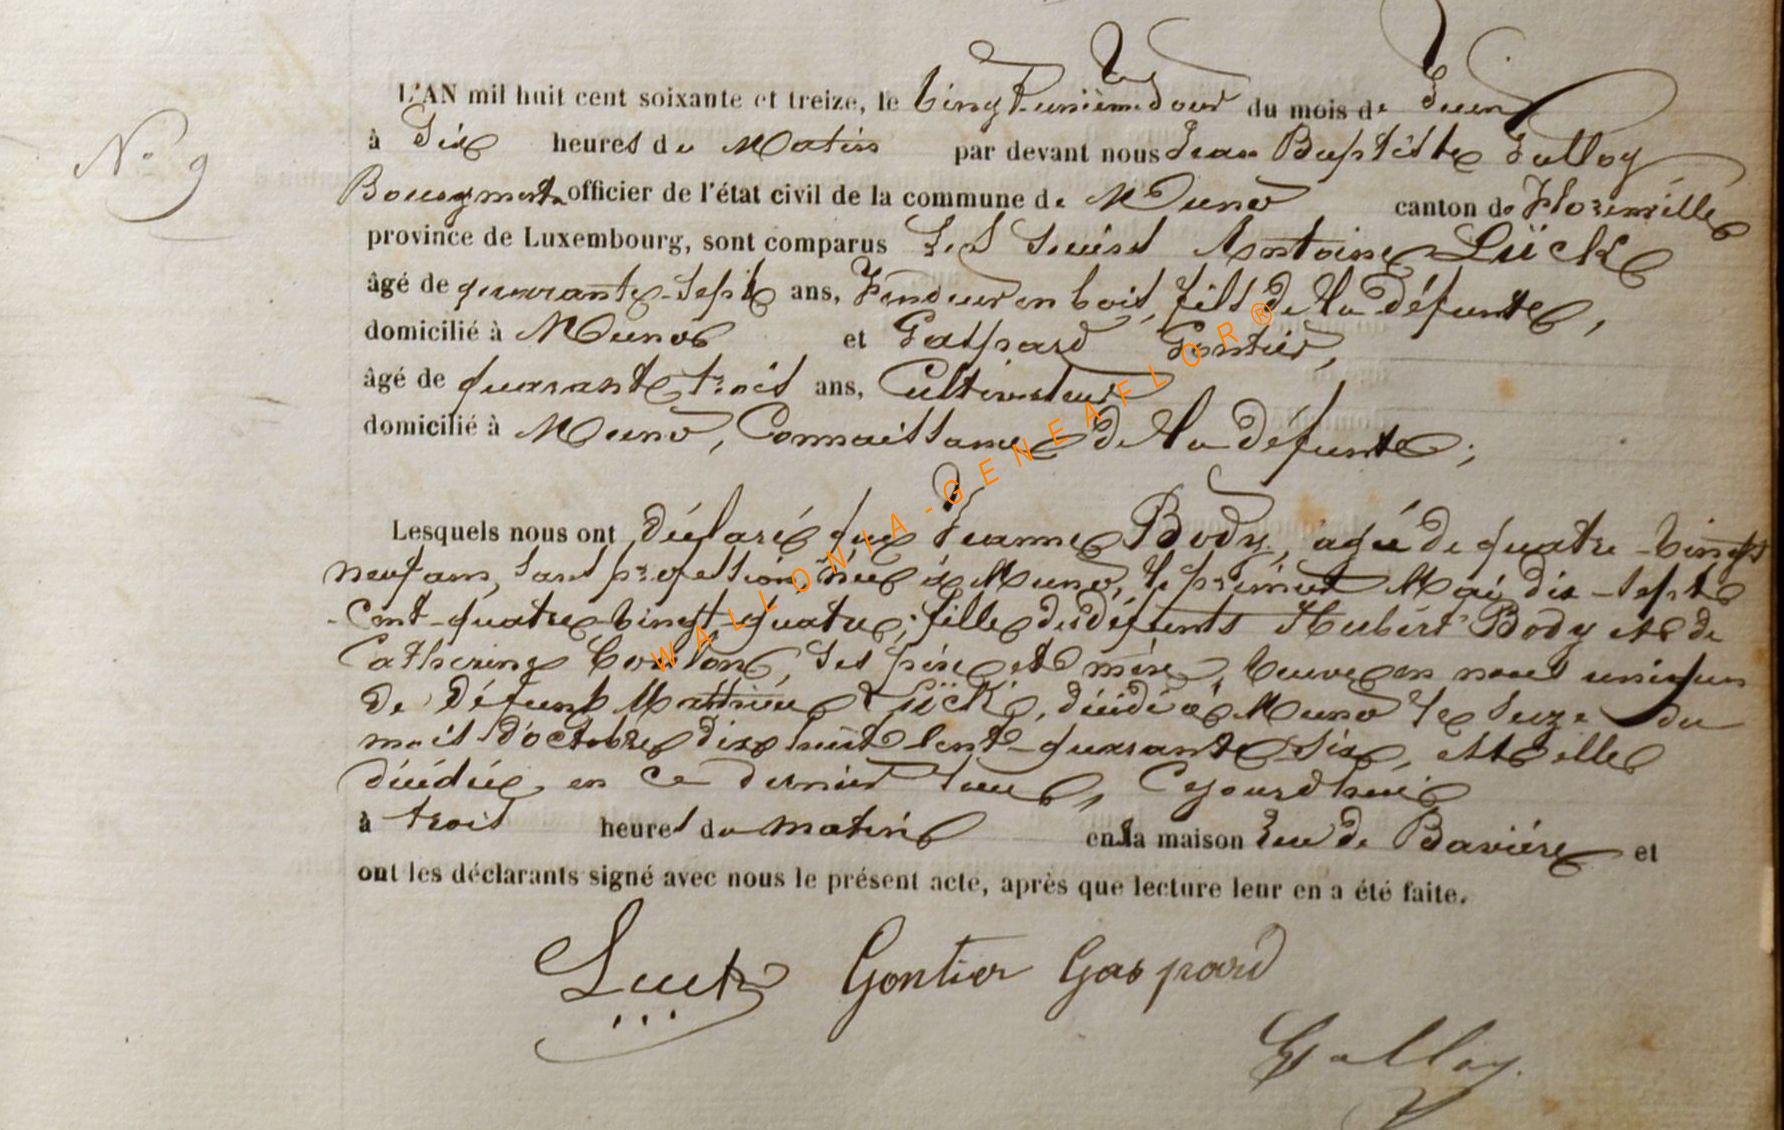 L'AN mil huit cent soixante et treize, le vingt unième Jour du mois de Juin
N° 9
à Dix heures du Matin par devant nous Jean Baptiste Galloy
Bourgmestre officier de l'état civil de la commune de Muno canton de Florenville
province de Luxembourg, sont comparus Les Sieurs Antoine Lück
âgé de quarante-sept ans, Fendeur en bois, fils de la défunte,
domicilié à Muno et Gaspard Gontier,
âgé de quarante trois ans, Cultivateur
domicilié à Muno, Connaissance de la défunte;
Lesquels nous ont déclaré que Jeanne Body, agée de quatre-vingt
neuf ans, sans profession, née à Muno, le premier Mai dix-sept
cent-quatre-vingt-quatre; fille des défunts Hubert Body et de
Catherine, ses père et mère, veuve en noces
de défunt Mathieu Lück, décédé à Muno le seize du
mois d'octobre dix huit cent-quarante-six, et elle
décédée en ce dernier lieu, Cejourd'hui
à trois heures du matin en sa maison rue de Bavière et
ont les déclarants signé avec nous le présent acte, après que lecture leur en a été faite.
Gontier Gaspard
Galloy
WALLONIA-GENEAFLOR®